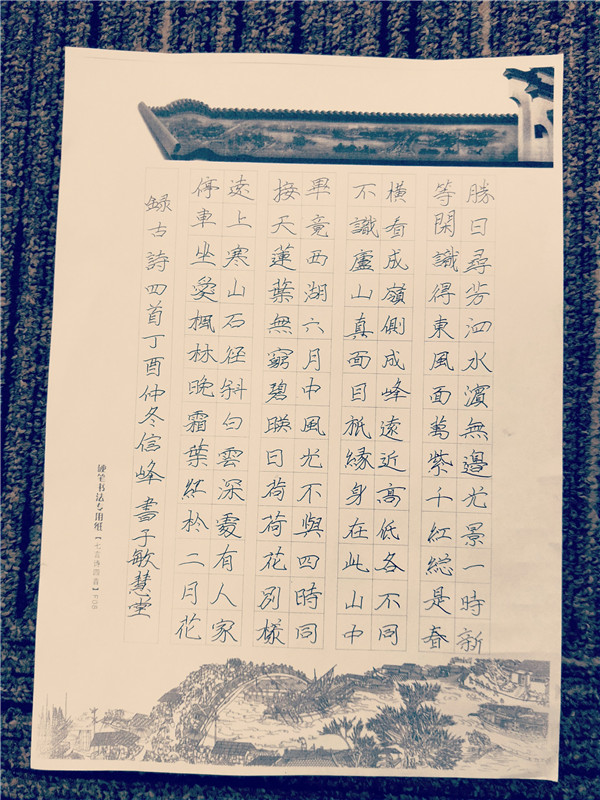 勝日尋芳泗水濱無邊光景一時新
等閑識得東風面萬紫千紅総是春
橫看成嶺側成峰遠近高低各不同
不識廬山真面目祇緣身在此山中
畢竟西湖六月中風光不與四時同
接天蓮葉無窮碧暎日荷荷花別樣
遠上寒山石径斜白雲深處有人家
停車坐愛楓林晚霜葉紅於二月花
錄古詩四首丁酉仲冬信峰書于敏慧堂
硬笔书法专用纸【七言诗四首】F06